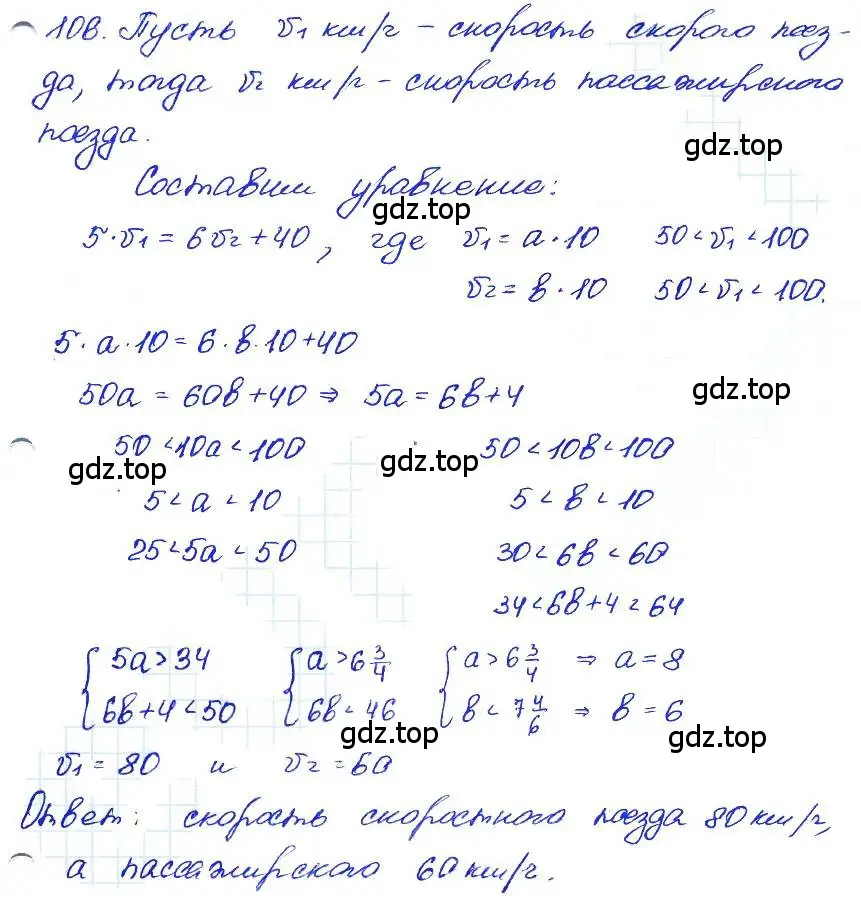 108. Пусть v₁ км/ч – скорость скорого поез-
да, тогда v₂ км/ч – скорость пассажирского
поезда.
gdz.top
Составим уравнение:
gdz.top
5·v₁ = 6v₂ + 40, где v₁ = a·10 50 < v₁ < 100
v₂ = в·10 50 < v₁ < 100.
5·a·10 = 6·в·10 + 40
50a = 60в + 40 ⇒ 5a = 6в + 4
gdz.top
50 < 10a < 100 50 < 10в < 100
gdz.top gdz.top
5 < a < 10 5 < в < 10
25 < 5a < 50 30 < 6в < 60
34 < 6в + 4 < 64
{ 5a > 34 { a > 6 3/4 { a > 6 3/4 ⇒ a = 8
6в + 4 < 50 6в < 46 в < 7 4/6 ⇒ в = 6
gdz.top gdz.top
v₁ = 80 и v₂ = 60
Ответ: скорость скоростного поезда 80 км/ч,
а пассажирского 60 км/ч.